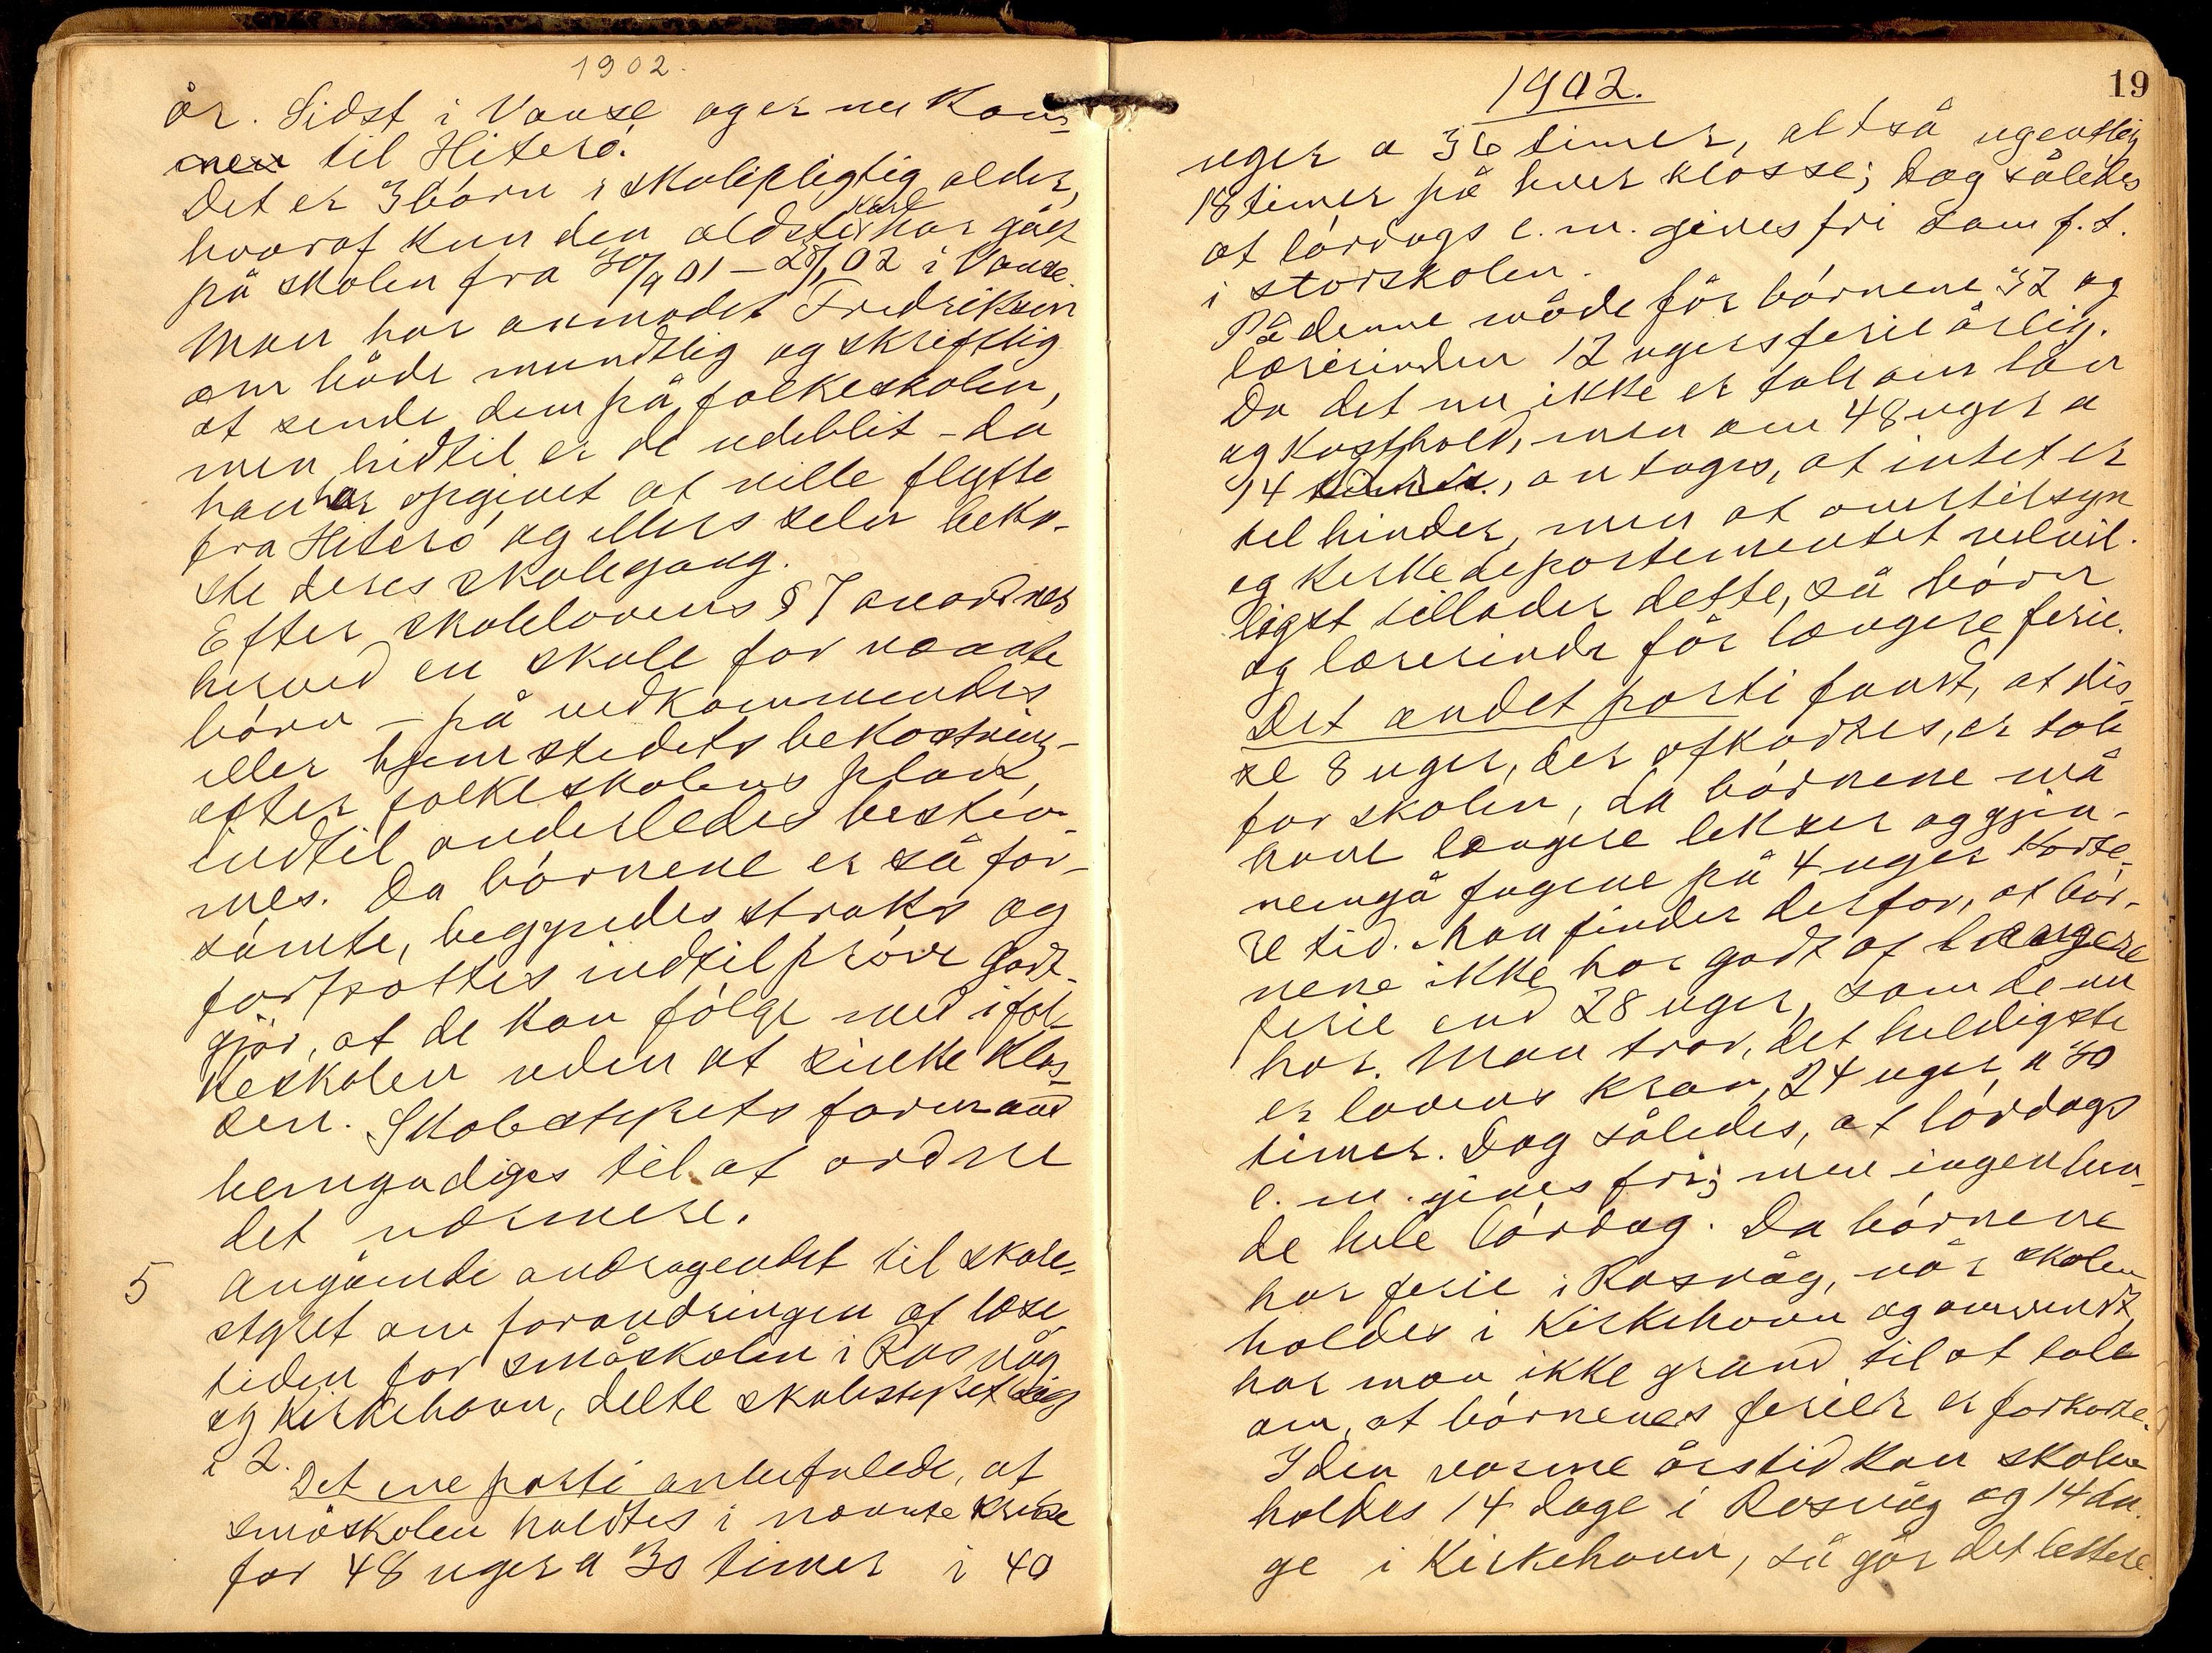 1902.
år. Sidst i Vanse og er nu kom-
men til Hiterö.
Det er 3 børn i skolepligtig alder,
hvoraf kun den ældste Karl har gået
på skolen fra 30/9 01 – 28/1 02 i Vanse.
Man har anmodet Fredriksen
om både mundtlig og skriftlig
at sende dem på folkeskolen,
men hidtil er de udeblit – da
han har opgivet at ville flytte
fra Hiterö og ellers selv beko-
ste deres skolegang.
Efter skolelovens § 7 anordnes
herved en skole for nævnte
børn – på vedkommendes
eller hjemstedets bekostning –
efter folkeskolens plan,
indtil anderledes bestem-
mes. Da børnene er så for-
sömte, begyndes straks og
fortsættes indtil pröve godt-
gjör, at de kan fölge med i fol-
keskolen uden at sinke klas-
sen. Skolestyrets formand
bemyndiges til at ordne
det nærmere.
5 Angående andragendet til skole-
styret om forandringen af læse-
tiden for småskolen i Rasvåg
og Kirkehavn, delte skolestyret sig
i 2.
Det ene parti anbefalede, at
småskolen holdtes i nævnte kredse
for 48 uger a 30 timer i 40
1902.
19
uger a 36 timer, altså ugentlig
18 timer på hver klasse; dog således
at lördags e.m. gives fri som f.t.
i storskolen.
På denne måde får börnene 32 og
lærerinden 12 ugers ferie årlig.
Da det nu ikke er tale om lön
og kosthold, men om 48 uger a
14 , antages, at intet er
til hinder, men at overtilsyn
og kirkedepartementet velvil-
ligst tillader dette, så börn
og lærerinde får længere ferie.
Det andet parti fandt, at dis-
se 8 uger, der afkortes, er tab
for skolen, da börnene må
have længere lekser og gjen-
nemgå fagene på 4 uger korte-
re tid. Man finder derfor, at bör-
nene ikke har godt af længere
ferie end 28 uger, som de nu
har. Man tror, det heldigste
er lovens krav, 24 uger a 30
timer. Dog således, at lördags
e.m. gives fri; men ingenlun-
de hele lördag. Da börnene
har ferie i Rasvåg, når skolen
holdes i Kirkehavn og omvendt,
har man ikke grund til at tale
om, at börnenes ferier er forkorte.
I den varme årstid kan skolen
holdes 14 dage i Rasvåg og 14 da-
ge i Kirkehavn, så går det lettere.